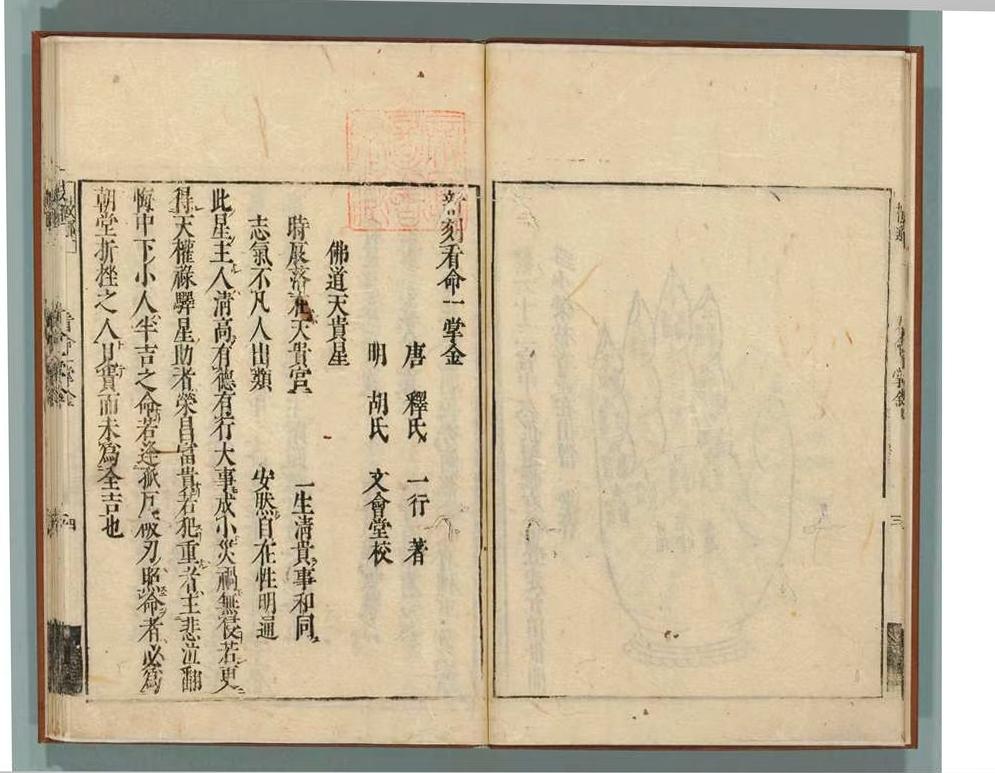 新刻看命一掌金
唐 釋氏 一行 著
明 胡氏 文會堂校
佛道天貴星
時辰落在天貴宮 一生清貴事和同
志氣不凡人出類 安然自在性明通
此星主人清高有德有行大事成小災禍無侵若更
得天權祿驛星助者榮昌富貴若犯重者主悲泣翻
悔中下小人半吉之命若逢孤厄破刃照命者必為
朝堂折挫之人日貴而未為全吉也